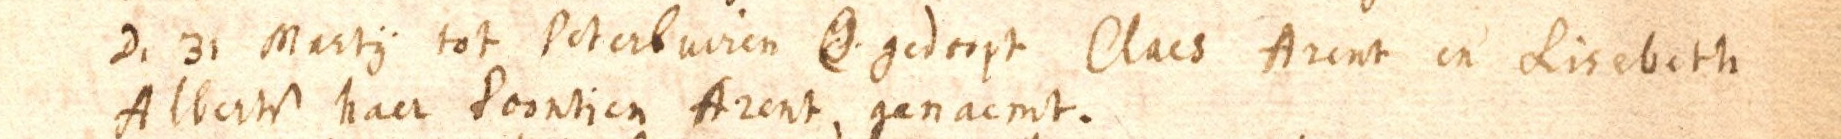 D. 31 Martij tot Peterbuiren gedoopt Claes Arent en Lisebeth
Alberts haer Soontien Arent, genaemt.